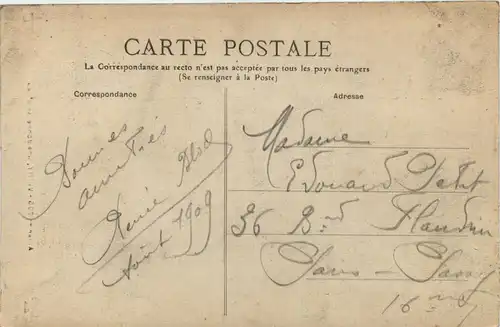 CARTE POSTALE
La Correspondance au recto n'est pas acceptée par tous les pays étrangers
(Se renseigner à la Poste)
Correspondance
Adresse
Bonnes
amitiés
Renée Bloch
Août 1909
Madame
Edouard Petit
36 Bd Flandrin
Paris - Passy
16me